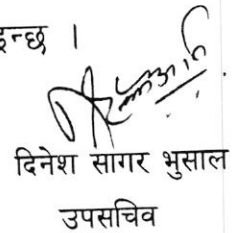 इन्छ ।
दिनेश सागर भुसाल
उपसचिव